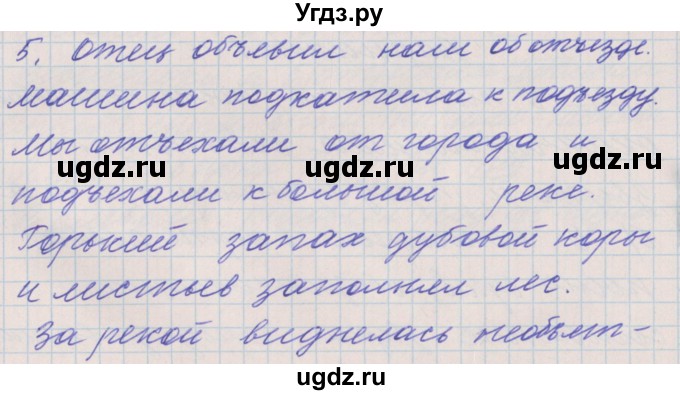 Угдз.ру
5. Отец объявил нам об отъезде.
Машина подкатила к подъезду.
ugdz.ru ugdz.ru ugdz.ru
Мы отъехали от города и
подъехали к большой реке.
Горький запах дубовой коры
ugdz.ru ugdz.ru
и листьев заполнял лес.
За рекой виднелась необъят-
ugdz.ru